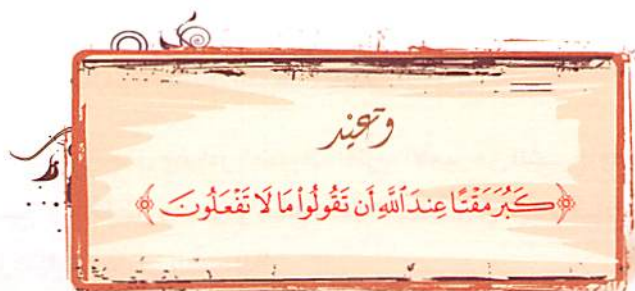 وعيد
﴿كَبُرَ مَقْتًا عِندَ ٱللَّهِ أَن تَقُولُوا۟ مَا لَا تَفْعَلُونَ﴾